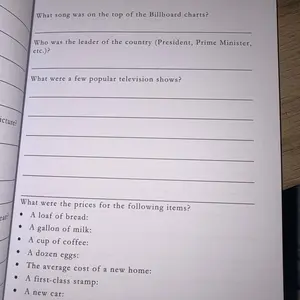 What song was on the top of the Billboard charts?
Who was the leader of the country (President, Prime Minister,
etc.)?
What were a few popular television shows?
What were the prices for the following items?
• A loaf of bread:
• A gallon of milk:
• A cup of coffee:
• A dozen eggs:
• The average cost of a new home:
• A first-class stamp:
• A new car: